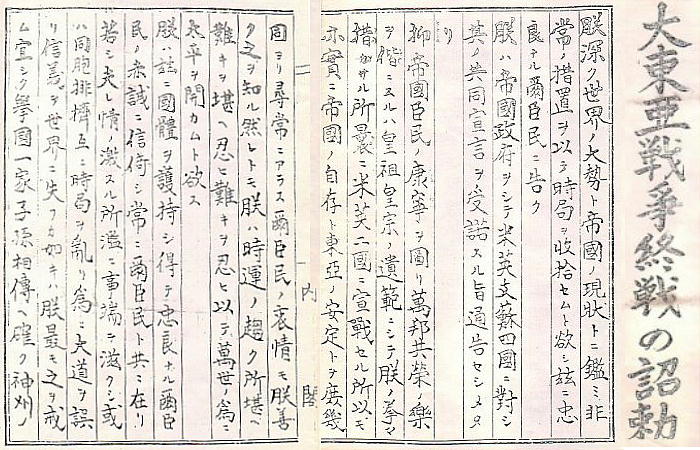 大東亜戦争終戦の詔勅
朕深ク世界ノ大勢ト帝國ノ現狀トニ鑑ミ非
常ノ措置ヲ以テ時局ヲ收拾セムト欲シ茲ニ忠
良ナル爾臣民ニ告ク
朕ハ帝國政府ヲシテ米英支蘇四國ニ對シ
其ノ共同宣言ヲ受諾スル旨通告セシメタ
リ
抑帝國臣民ノ康寧ヲ圖リ萬邦共榮ノ樂
ヲ偕ニスルハ皇祖皇宗ノ遺範ニシテ朕ノ拳々
措カサル所曩ニ米英二國ニ宣戰セル所以モ
亦實ニ帝國ノ自存ト東亞ノ安定トヲ庶幾
内閣
固ヨリ尋常ニアラス爾臣民ノ衷情モ朕善
ク之ヲ知ル然レトモ朕ハ時運ノ趨ク所堪ヘ
難キヲ堪ヘ忍ヒ難キヲ忍ヒ以テ萬世ノ爲ニ
太平ヲ開カムト欲ス
朕ハ茲ニ國體ヲ護持シ得テ忠良ナル爾臣
民ノ赤誠ニ信倚シ常ニ爾臣民ト共ニ在リ
若シ夫レ情ノ激スル所濫ニ事端ヲ滋クシ或
ハ同胞排擠互ニ時局ヲ亂リ爲ニ大道ヲ誤
リ信義ヲ世界ニ失フカ如キハ朕最モ之ヲ戒
ム宜シク擧國一家子孫相傳ヘ確ク神州ノ